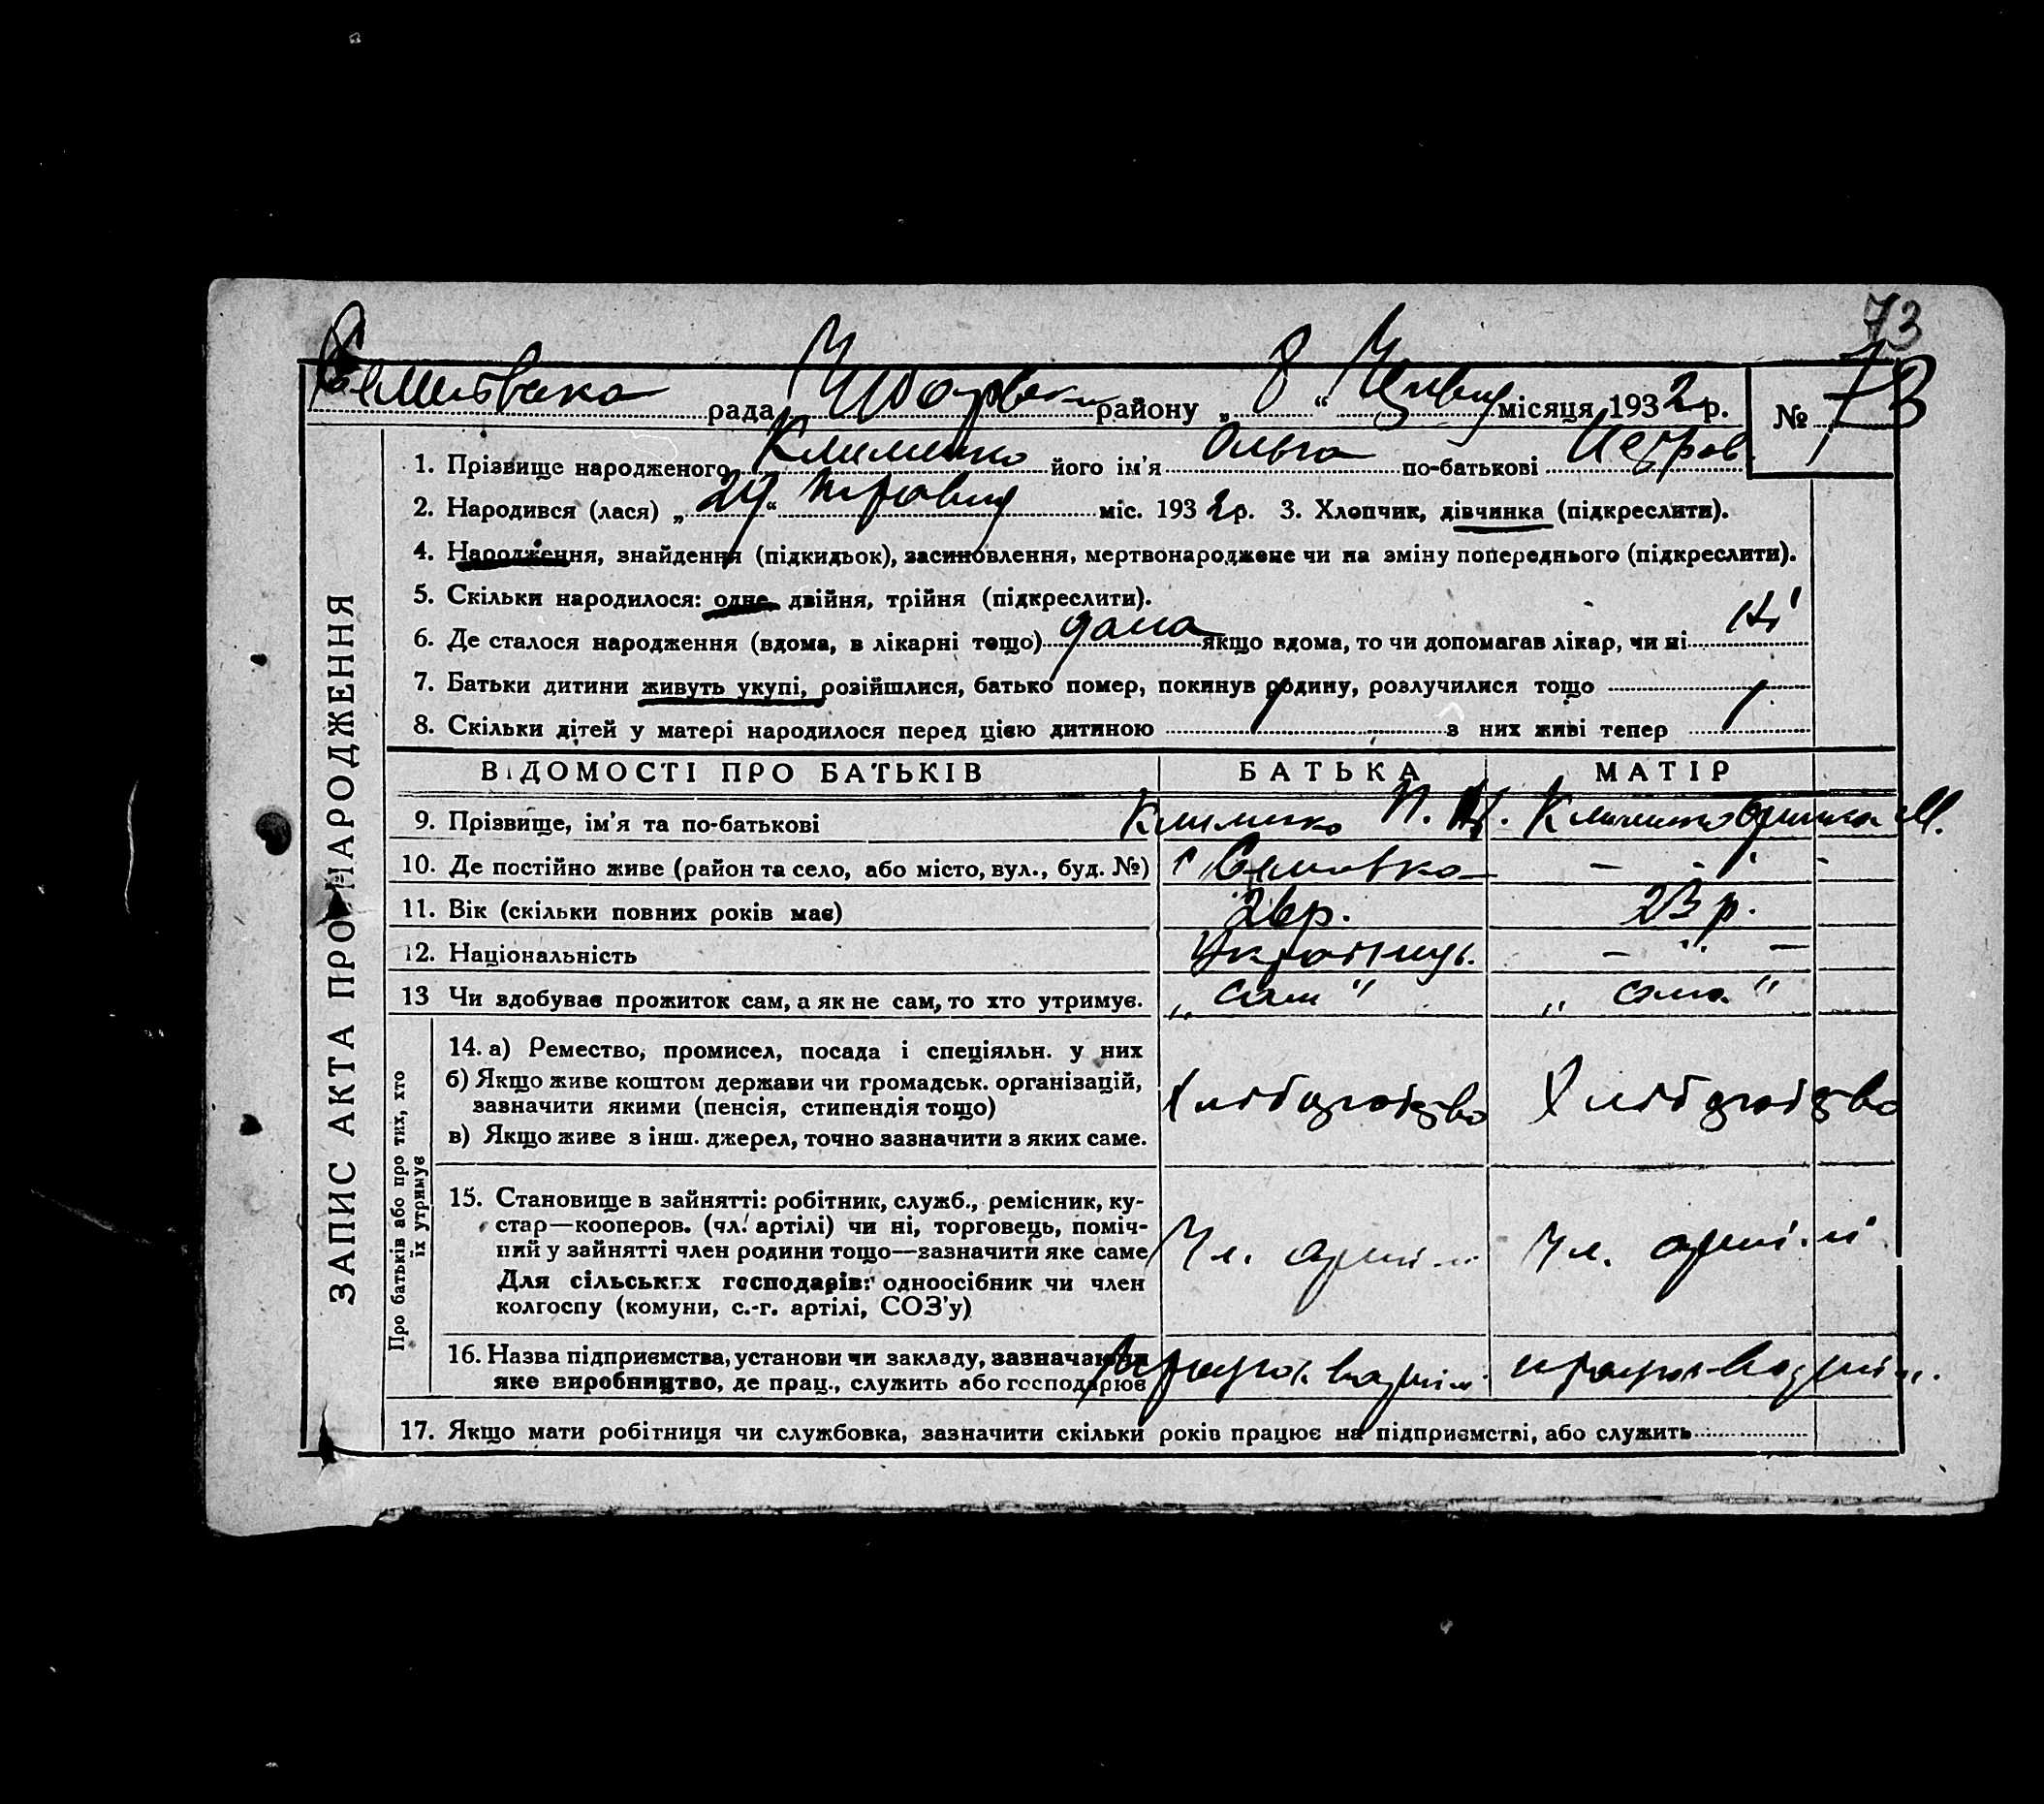 73
рада району „ 8 “ місяця 1932 р. № 73
1. Прізвище народженого Клименко його ім'я Ольга по-батькові Петров.
2. Народився (лася) „ “ травня міс. 1932 р. 3. Хлопчик, дівчинка (підкреслити).
4. Народження, знайдення (підкидьок), засиновлення, мертвонароджене чи на зміну попереднього (підкреслити).
5. Скільки народилося: одне, двійня, трійня (підкреслити).
6. Де сталося народження (вдома, в лікарні тощо) дома якщо вдома, то чи допомагав лікар, чи ні ні
7. Батьки дитини живуть укупі, розійшлися, батько помер, покинув родину, розлучилися тощо
8. Скільки дітей у матері народилося перед цією дитиною 1 з них живі тепер 1
ВІДОМОСТІ ПРО БАТЬКІВ БАТЬКА МАТІР
9. Прізвище, ім'я та по-батькові Клименко П. Клименко М.
10. Де постійно живе (район та село, або місто, вул., буд. №)
11. Вік (скільки повних років має) 26 р. 23 р.
12. Національність Українець. — " —
13 Чи здобуває прожиток сам, а як не сам, то хто утримує. „ сам " „ сама "
14. а) Ремество, промисел, посада і спеціяльн. у них
б) Якщо живе коштом держави чи громадськ. організацій,
зазначити якими (пенсія, стипендія тощо)
Хліборобство Хліборобство
в) Якщо живе з інш. джерел, точно зазначити з яких саме.
15. Становище в зайнятті: робітник, служб., ремісник, ку-
стар—кооперов. (чл. артілі) чи ні, торговець, поміч-
ний у зайнятті член родини тощо—зазначити яке саме Чл. артілі Чл. артілі
Для сільських господарів: одноосібник чи член
колгоспу (комуни, с.-г. артілі, СОЗ'у)
16. Назва підприємства, установи чи закладу, зазначаючи
яке виробництво, де прац., служить або господарює
17. Якщо мати робітниця чи службовка, зазначити скільки років працює на підприємстві, або служить
ЗАПИС АКТА ПРО НАРОДЖЕННЯ
Про батьків або про тих, хто
їх утримує